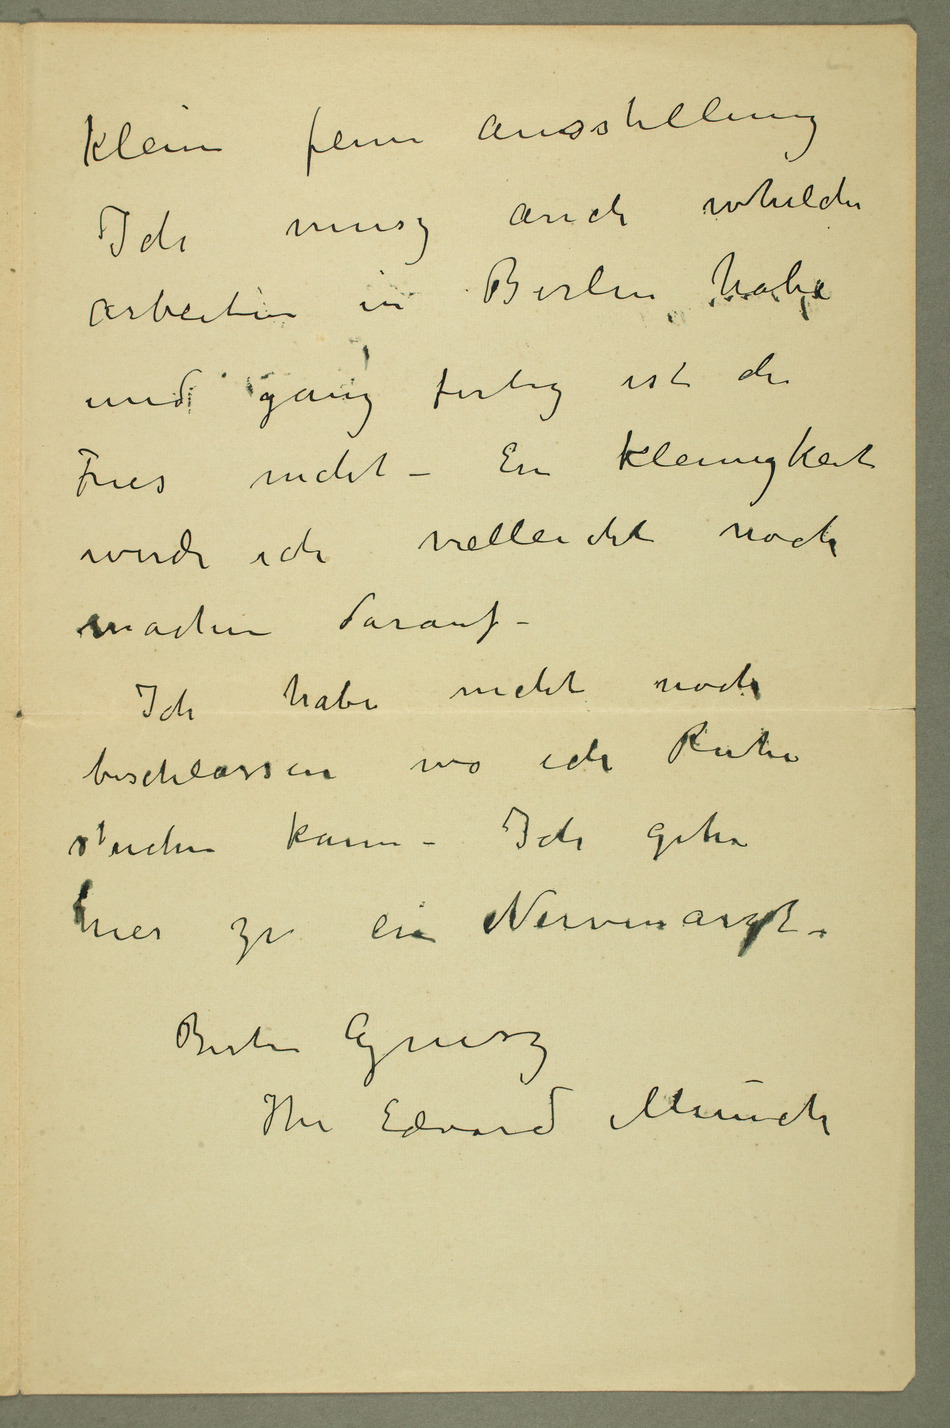 kleine feine Ausstellung
Ich musz auch
arbeiten in Berlin habe
und ganz fertig ist der
Fries nicht – Ein Kleinigkeit
werde ich vielleicht noch
machen darauf –
Ich habe nicht noch
beschlossen wo ich Ruhe
suchen kann – Ich gehe
hier zu ein Nervenarzt –
Besten Grusz
Ihr Edvard Munch